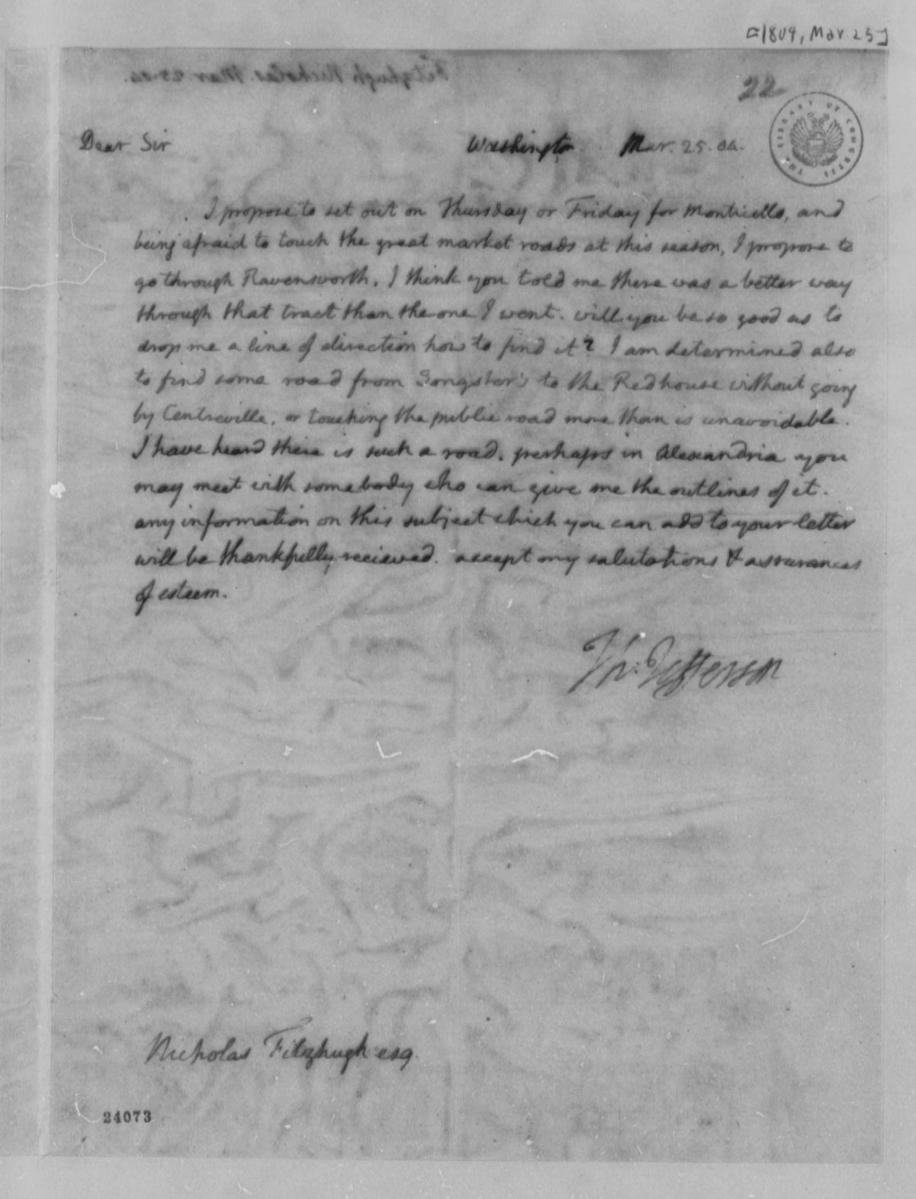 [1804, Mar 25]
22
THE LIBRARY OF CONGRESS
Dear Sir Washington Mar. 25. 04.
I propose to set out on Thursday or Friday for Monticello, and
being afraid to touch the great market roads at this season, I propose to
go through Ravensworth. I think you told me there was a better way
through that tract than the one I went. will you be so good as to
drop me a line of direction how to find it? I am determined also
to find some road from Songster's to the Redhouse without going
by Centreville, or touching the public road more than is unavoidable.
I have heard there is such a road. perhaps in Alexandria you
may meet with somebody who can give me the outlines of it.
any information on this subject which you can add to your letter
will be thankfully recieved. accept my salutations & assurances
of esteem.
Th: Jefferson
Nicholas Fitzhugh esq.
24073